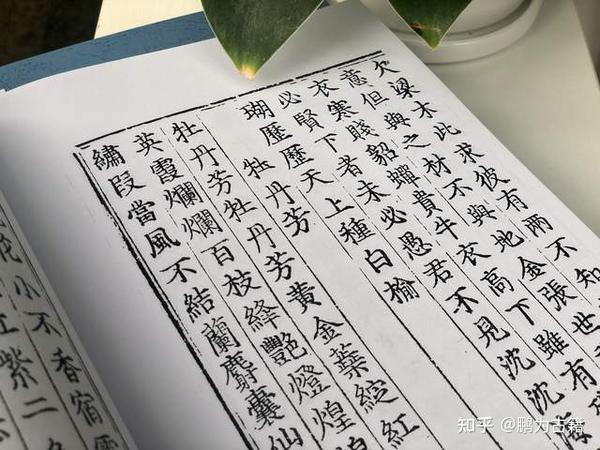 欠梁木此求彼有兩不知
意但與之材不與地金張世
衣寒賤貂蟬貴牛衣高下雖有
必賢下者未必愚君不見沈沈海
瑚歷歷天上種白榆
牡丹芳
牡丹芳牡丹芳黃金蘂綻紅
英霞爛爛百枝絳艷燈煌煌
繡段當風不結蘭麝囊仙
小不香宿
紫二
知乎 @鹏为古籍